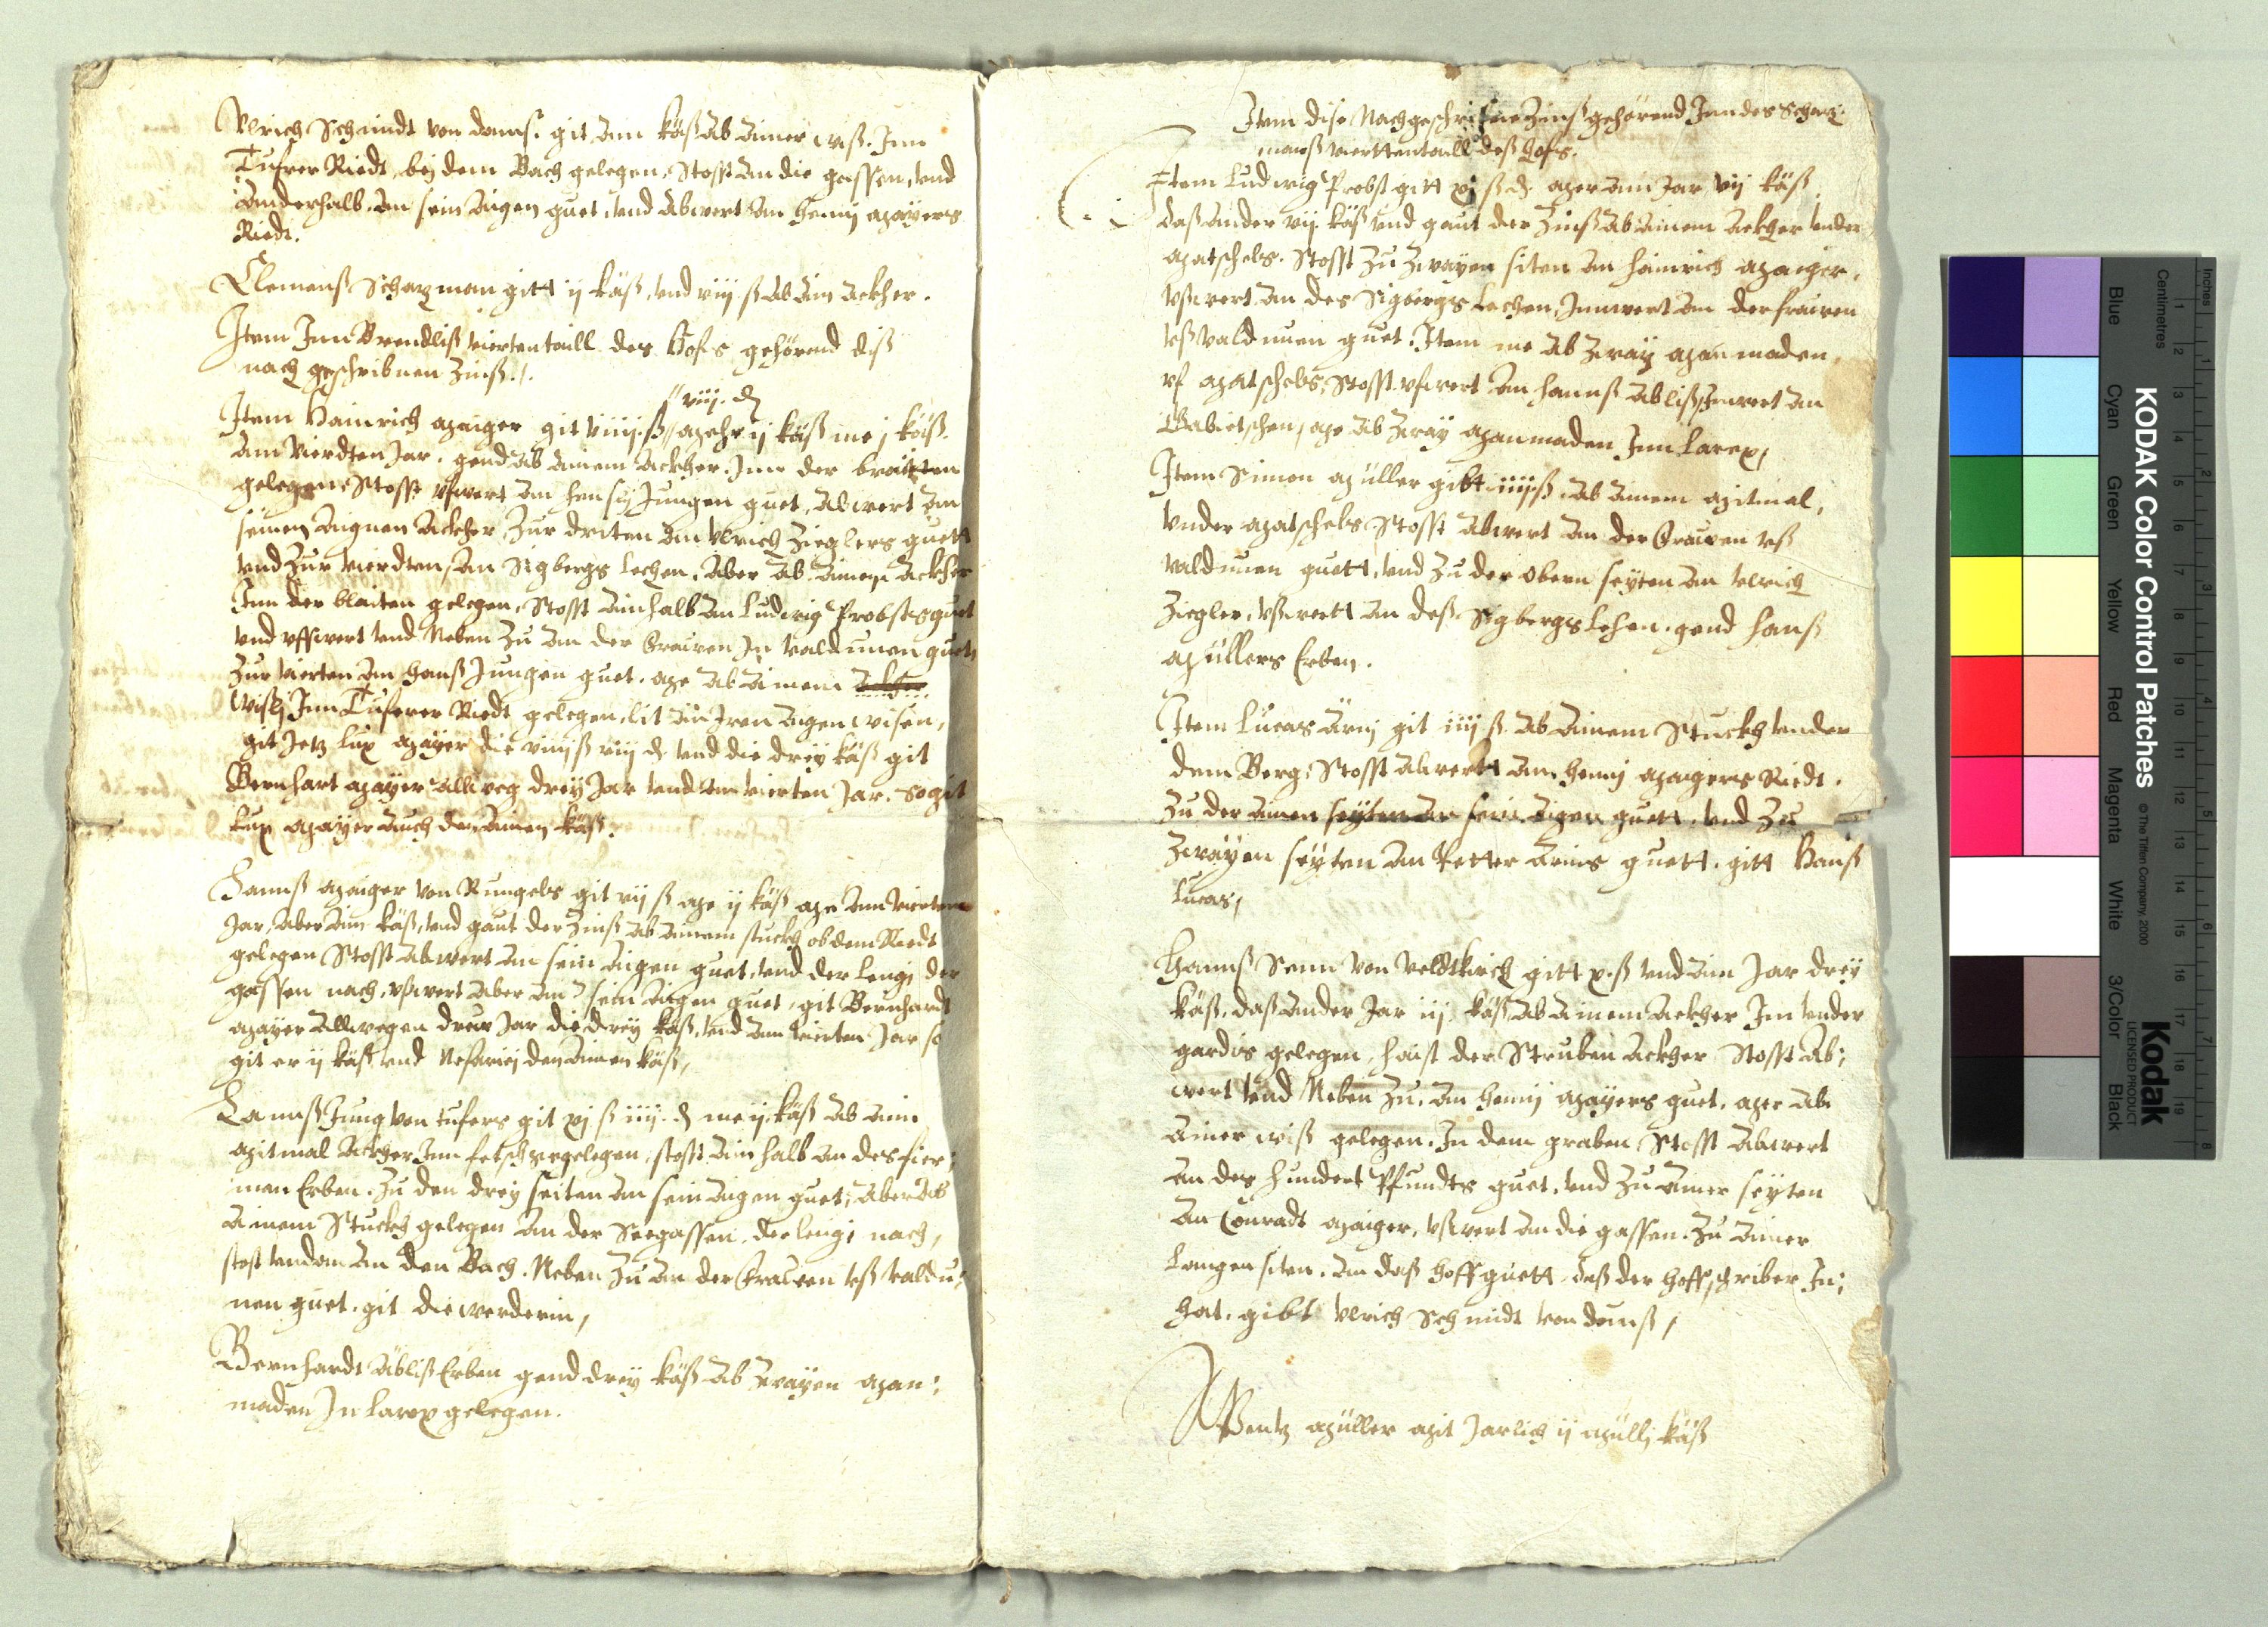 Vlrich Schmidt von dums. git ain käß ab ainer wiß. Inn
Tufrer Riedt, bej dem Bach gelegen, Stosst an die gassen, vnd
anderhalb. an sein aigen guet, vnd abwert an Henny mayers
Riedt.
Clemenß Schazman gitt ij käß, vnd viij ß ab ain ackher.
Item Inn Brendliß viertentaill des Hofs gehörend diß
nach geschribnen Zinß./.
viij. d
Item Hainrich maiger git viiij. ß // mehr ij käß me j käß
am vierdten Jar. gend ab ainem ackher. Inn der braitten
gelegen, Stosst vfwert an Hensy Jungen guet, abwert an
seinen aignen ackher, Zur driten an Vlrich Zieglers guett
vnd Zur vierdten, an Sigbergs lechen. aber ab ainem ackher
Inn der blaiten gelegen, Stosst ainhalb an Ludwig Probsts guet
vnd vffwert vnd Neben Zu an der frawen In valdunen guet,
Zur vierten an Hanß Jungen guet. me ab ainem ackher
wißj Inn Tuferer Riedt gelegen, lit an Iren aigen wisen,
git Jetz lux mayer die viiij ß viij d. vnd die drey käß git
Bernhart mayer allweg drey Jar vnd am vierten Jar. so git
lux mayer auch den ainen käß.
Hannß maiger von Rungels git vij ß me ij käß me am vierten
Jar, aber ain käß, vnd gaut der Zinß ab ainem stuckh ob dem Riedt
gelegen Stosst abwert an sein aigen guet, vnd der lengj der
gassen nach, vßwert aber an sein aigen guet, git Bernhardt
mayer allwegen drew Jar die drey käß, vnd am vierten Jar so
git er ij käß vnd den ainen käß,
Hannß Jung von tufers git xj ß iiij. d me ij. käß ab ain
mitmal ackher Inn gelegen, stosst ain halb an des
man Erben. Zu den drey seiten an sein aigen guet, aber ab
ainem Stuckh gelegen an der Seegassen. der lengj nach,
stost vndan an den Bach. Neben Zu an der frawen vß valdu:
nen guet. git die werderin,
Bernhardt äbliß Erben gend drey käß ab Zwayen man:
maden In larex gelegen.
Item dise Nachgeschribne Zinß gehörend Inn des Schaz:
manß vierttentaill deß Hofs.
Item Ludwig Probst gitt xj ß d. mer ain Jar vij käß
daß ander vij. käß vnd gaut der Zinß ab ainem ackher vnder
matschels. Stosst Zu Zwayen siten an Hainrich maiger,
vßwert an des Sigbergs lechen, Innwert an der frawen
vß valdunen guet. Item me ab Zway man maden,
vf matschels, Stosst vfwert an Hannß abliß, Inwert an
Gabietschen, me ab Zway manmaden Inn larex,
Item Simon müller gibt iiij ß. ab ainem mitmal,
vnder matschels Stosst abwert an der frawen vß
valdunen guett, vnd Zu der obern seyten an Vlrich
Ziegler, vßwertt an deß Sigbergs lehen. gend Hanß
müllers Erben.
Item Lucas ärnj git iiij ß ab ainem Stuckh vnder
dem Berg, Stosst abwertt an Henny maigers Riedt.
Zu der ainen seyten an sein aigen guett, vnd Zu
Zwayen seyten an Petter ärnis guett. gitt Hanß
Lucas,
Hannß Senn von Veldtkirch gitt x. ß vnd ain Jar drey
käß. daß ander Jar iij. käß, ab ainem ackher Im vnder
gardis gelegen, haist der Struben ackher Stosst ab:
wert vnd Neben Zu. an Henny mayers guet. mer ab
ainer wiß gelegen. In dem graben Stosst abwert
an des Hundert Pfundts guet, vnd Zu ainer seyten
an Conradt maiger, vßwert an die gassen. Zu ainer
langen siten. an daß Hoffguett, daß der Hoffschriber In:
hat. gibt Vlrich Schmidt von dumß,
Wentz müller git Jarlich ij mülli käß
KODAK Color Control Patches
© The Tiffen Company, 2000
Kodak
LICENSED PRODUCT
Inches
Centimetres
Blue
Cyan
Green
Yellow
Red
Magenta
White
3/Color
Black